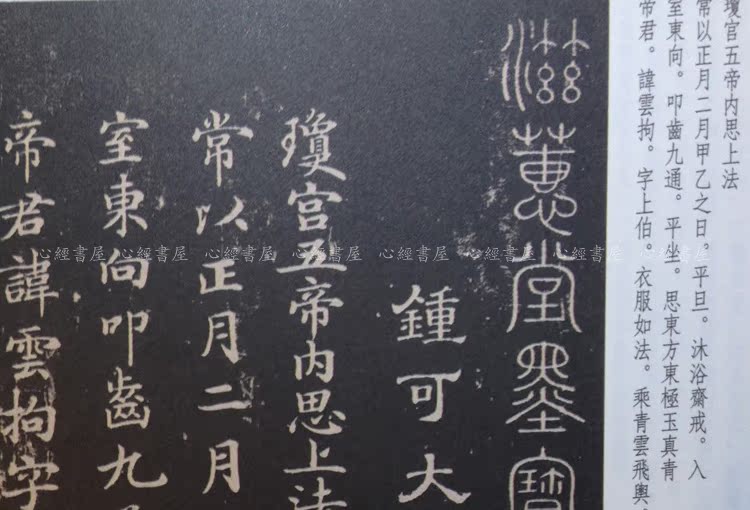 瓊宮五帝內思上法
常以正月二月甲乙之日。平旦。沐浴齋戒。入
室東向。叩齒九通。平坐。思東方東極玉真青
帝君。諱雲拘。字上伯。衣服如法。乘青雲飛輿。
滋蕙堂墨寶
鍾可大
瓊宮五帝內思上法
常以正月二月
室東向叩齒九
帝君諱雲拘字
心經書屋 心經書屋 心經書屋 心經書屋 心經書屋 心經書屋 心經書屋